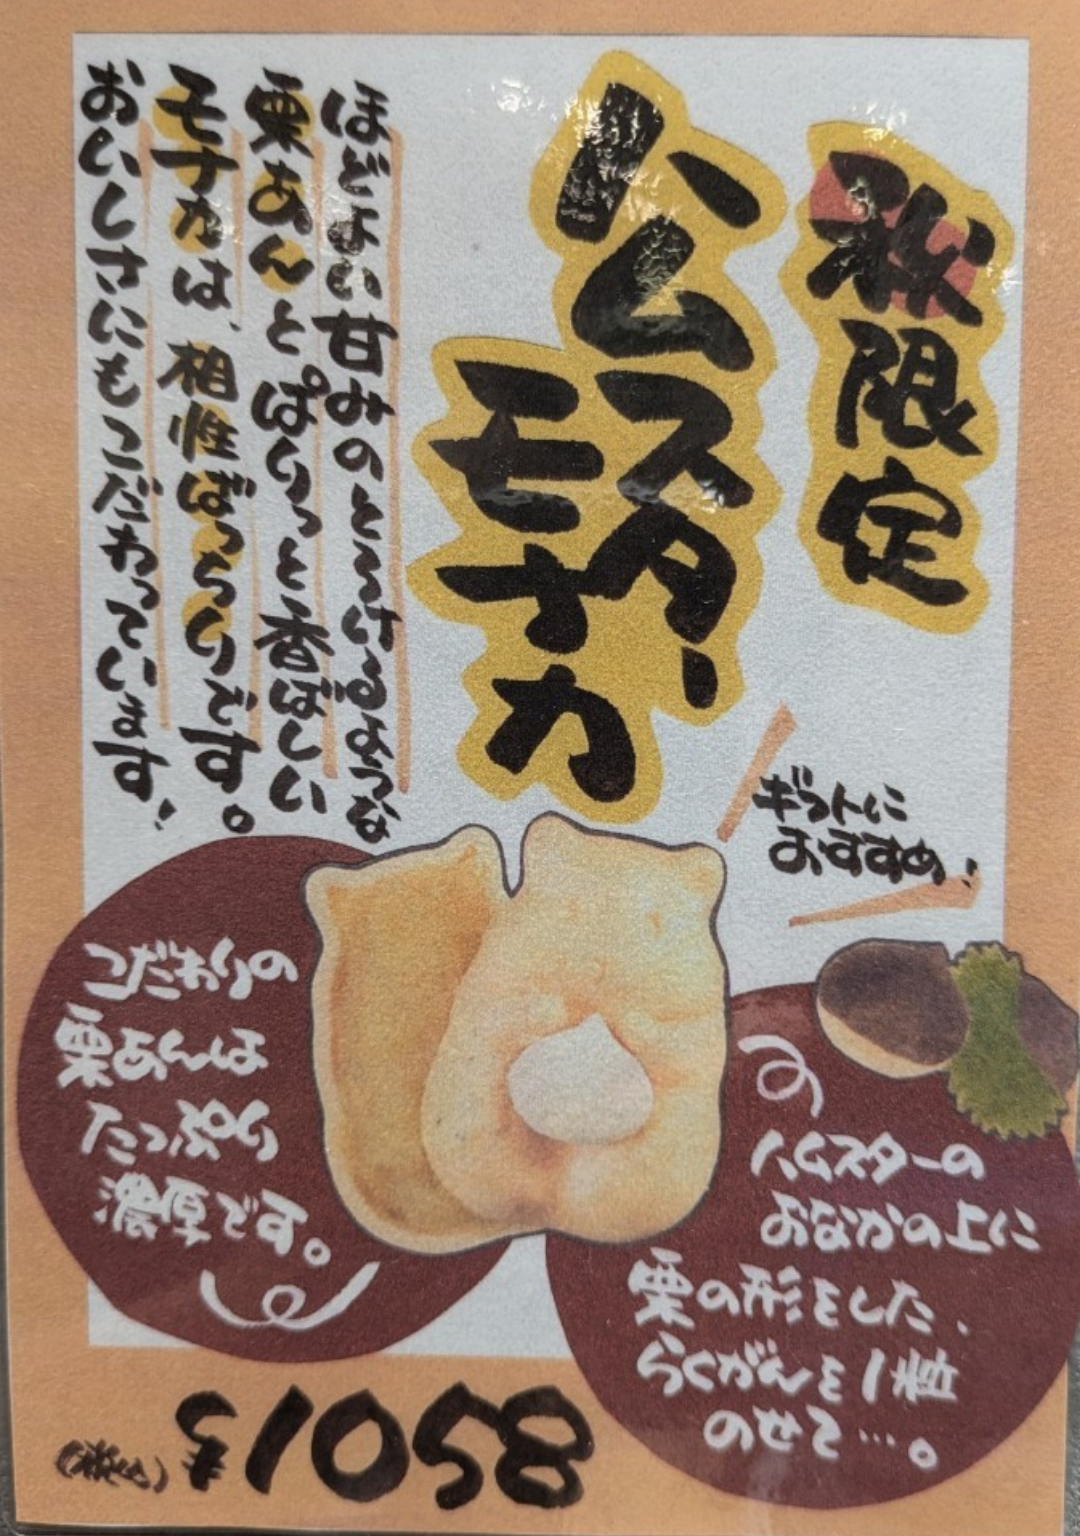 秋限定
ハムスター
モナカ
ほどよい甘みのとろけるような
栗あんとぱりっと香ばしい
モナカは、相性ばっちりです。
おいしさにもこだわっています!
ギフトに
おすすめ!
こだわりの
栗あんは
たっぷり
濃厚です。
ハムスターの
おなかの上に
栗の形をした、
らくがんを1粒
のせて…。
(税込) ¥1058